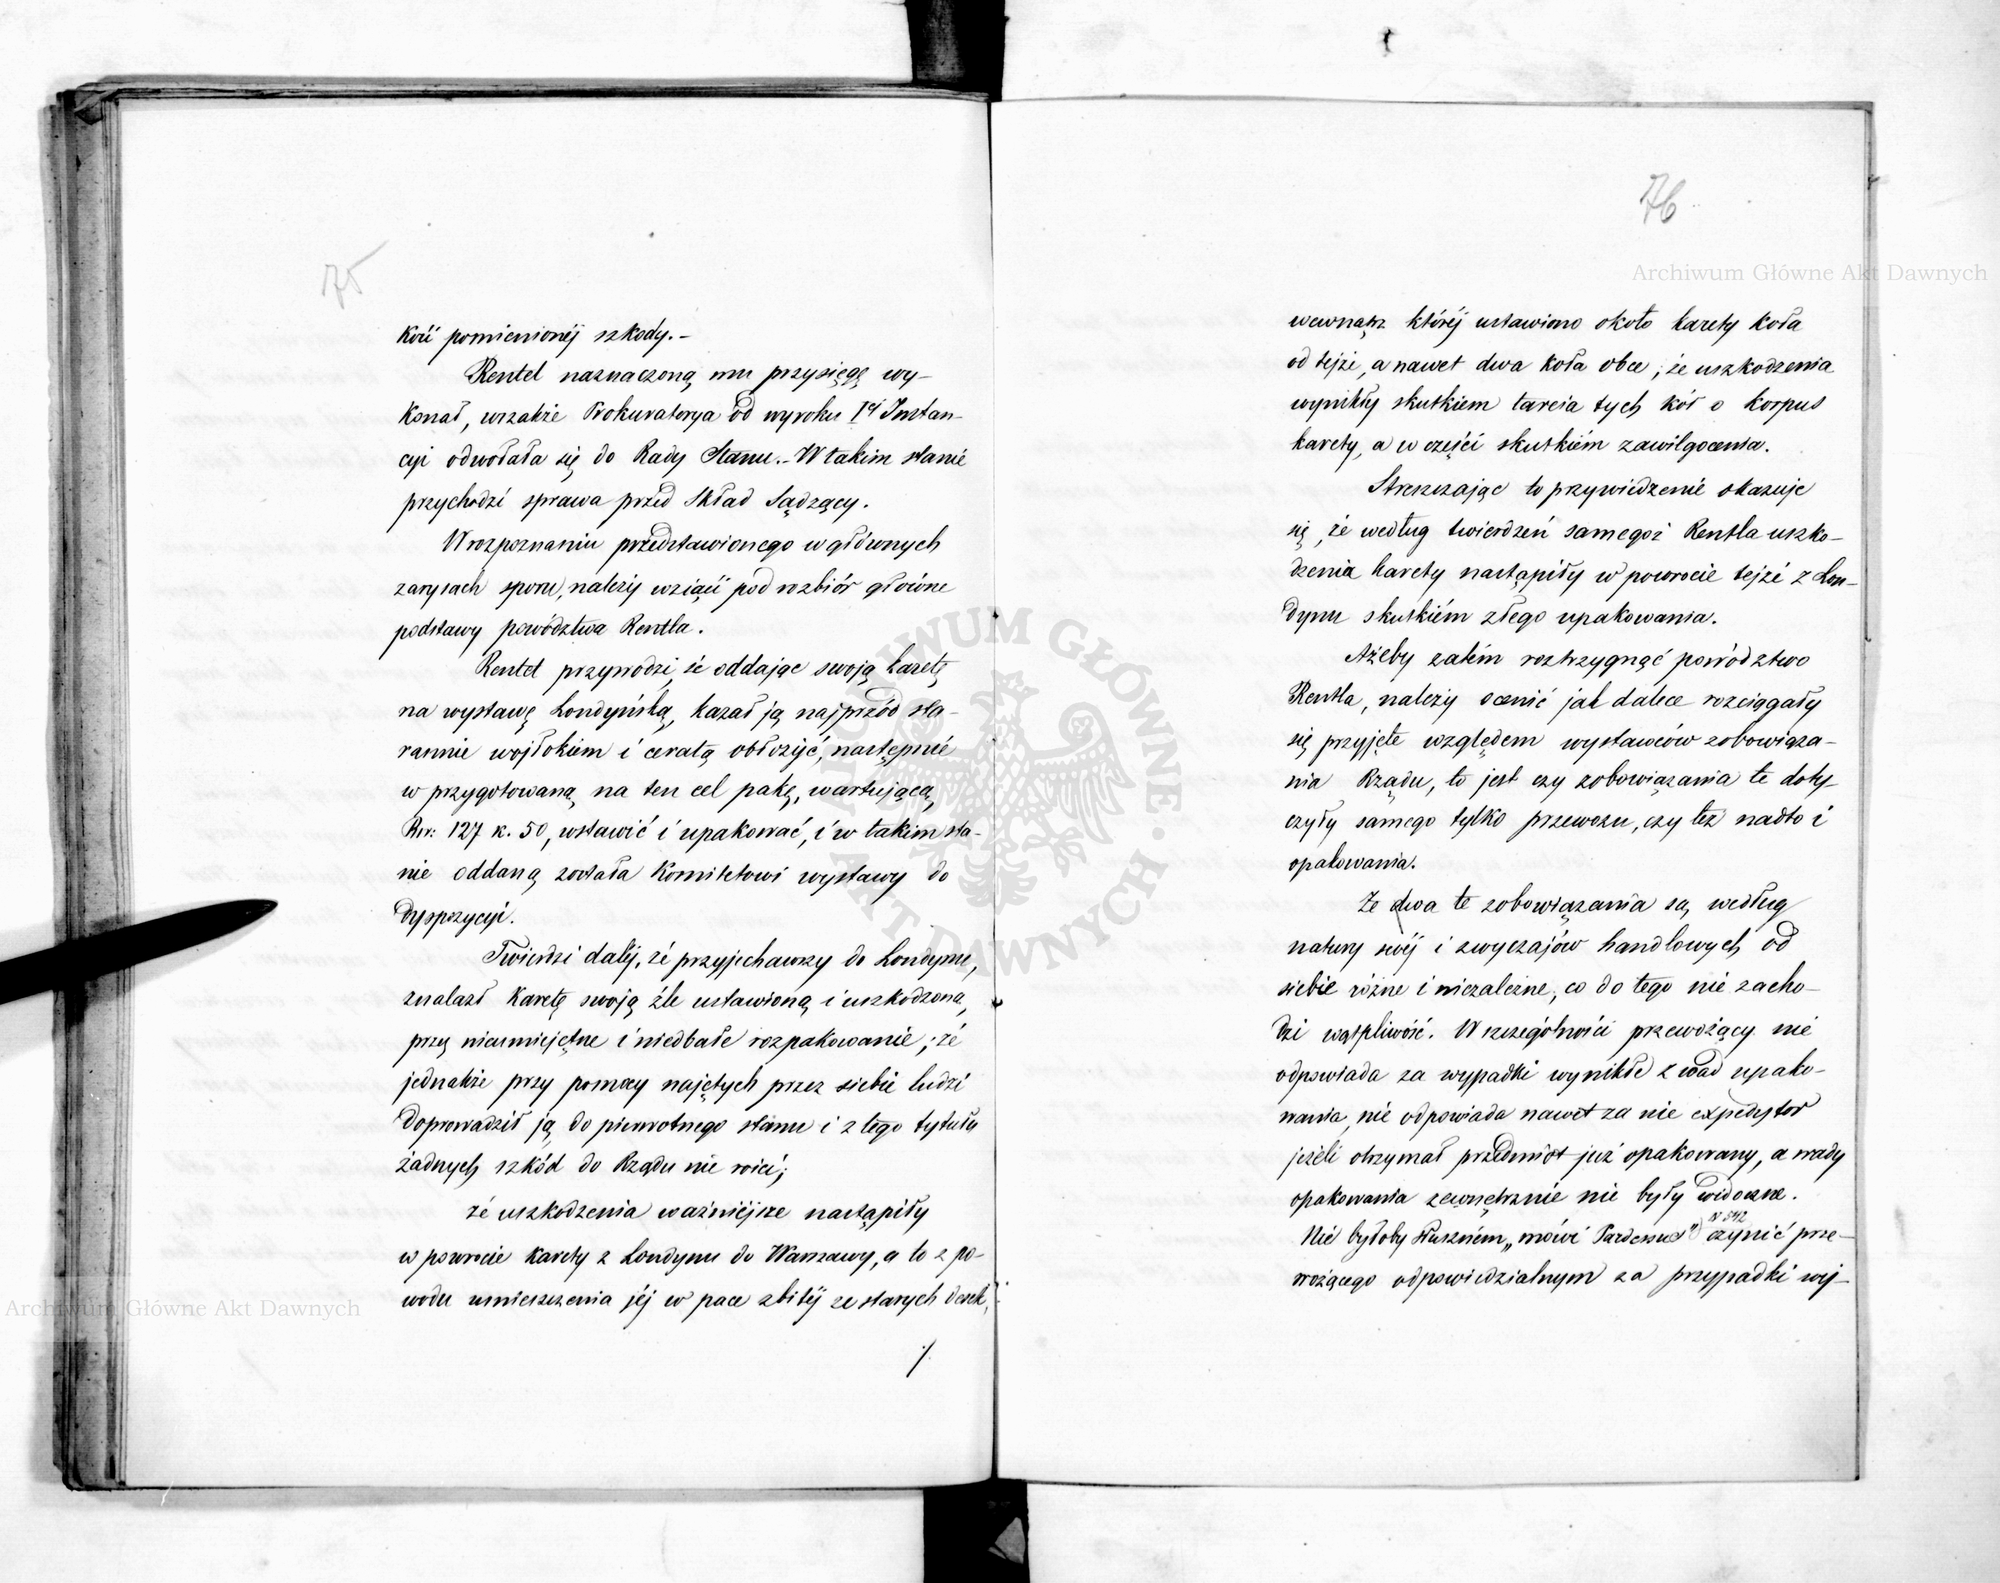 75
kość pomienionéj szkody.–
Rentel naznaczoną mu przysięgę wy-
konał, wszakże Prokuratorya od wyroku Iej Instan-
cyi odwołała się do Rady Stanu.– W takim stanie
przychodzi sprawa przed Skład Sądzący.
W rozpoznaniu przedstawionego w głównych
zarysach sporu, należy wziąść pod rozbiór główne
podstawy powództwa Rentla.
Rentel przywodzi, że oddając swoją karetę
na wystawę Londyńską, kazał ją najprzód sta-
rannie wojłokiem i ceratą obłożyć, następnie
w przygotowaną na ten cel pakę, wartującą
Rsr: 127 k. 50, wstawić i upakować, i w takim sta-
nie oddaną została Komitetowi wystawy do
dyspozycyi.
Twierdzi daléj, że przyjechawszy do Londynu,
znalazł karetę swoją źle ustawioną i uszkodzoną
przez nieumiejętne i niedbałe rozpakowanie; że
jednakże przy pomocy najętych przez siebie ludzi
doprowadził ją do pierwotnego stanu i z tego tytułu
żadnych szkód do Rządu nie rości;
że uszkodzenia ważniejsze nastąpiły
w powrocie karety z Londynu do Warszawy, a to z po-
wodu umieszczenia jéj w pace zbitéj ze starych desek,
/.
76
wewnątrz któréj ustawiono około karety koła
od tejże, a nawet dwa koła obce; że uszkodzenia
wynikły skutkiem tarcia tych kół o korpus
karety, a w części skutkiém zawilgocenia.
Streszczając to przywiedzenie okazuje
się, że według twierdzeń samegoż Rentla uszko-
dzenia karety nastąpiły w powrocie tejże z Lon-
dynu skutkiém złego upakowania.
Ażeby zatém roztrzygnąć powództwo
Rentla, należy ocenić jak dalece rozciągały
się przyjęte względem wystawców zobowiąza-
nia Rządu, to jest czy zobowiązania te doty-
czyły samego tylko przewozu, czy też nadto i
opakowania.
Że dwa te zobowiązania są według
natury swéj i zwyczajów handlowych od
siebie różne i niezależne, co do tego nie zacho-
dzi wątpliwość. W szczególności przewożący nie
odpowiada za wypadki wynikłe z wad upako-
wania, nie odpowiada nawet za nie expedytor
jeżeli otrzymał przedmiot już opakowany, a wady
opakowania zewnętrznie nie były widoczne.
N 542
Nie byłoby słuszném „mówi Pardessus") czynić prze-
wożącego odpowiedzialnym za przypadki wy-
Archiwum Główne Akt Dawnych
Archiwum Główne Akt Dawnych
ARCHIWUM GŁÓWNE AKT DAWNYCH